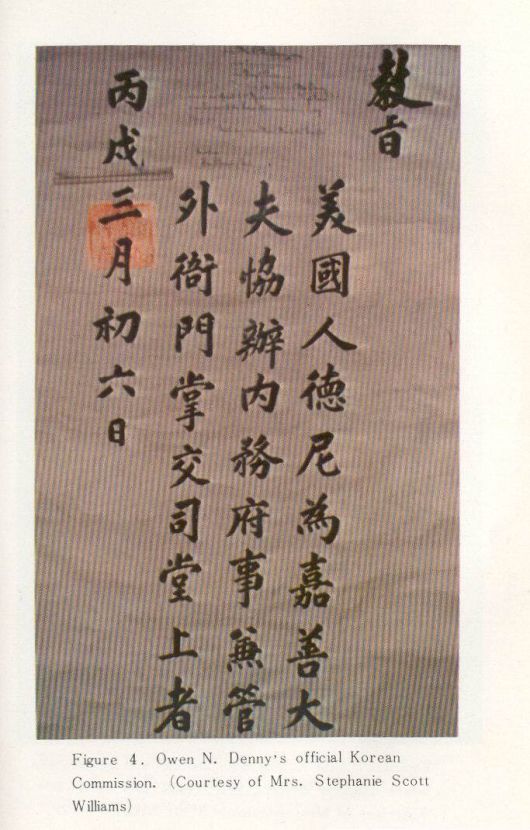 教旨
美國人德尼為嘉善大
夫協辦內務府事兼管
外衙門掌交司堂上者
丙戌三月初六日
Figure 4. Owen N. Denny's official Korean
Commission. (Courtesy of Mrs. Stephanie Scott
Williams)